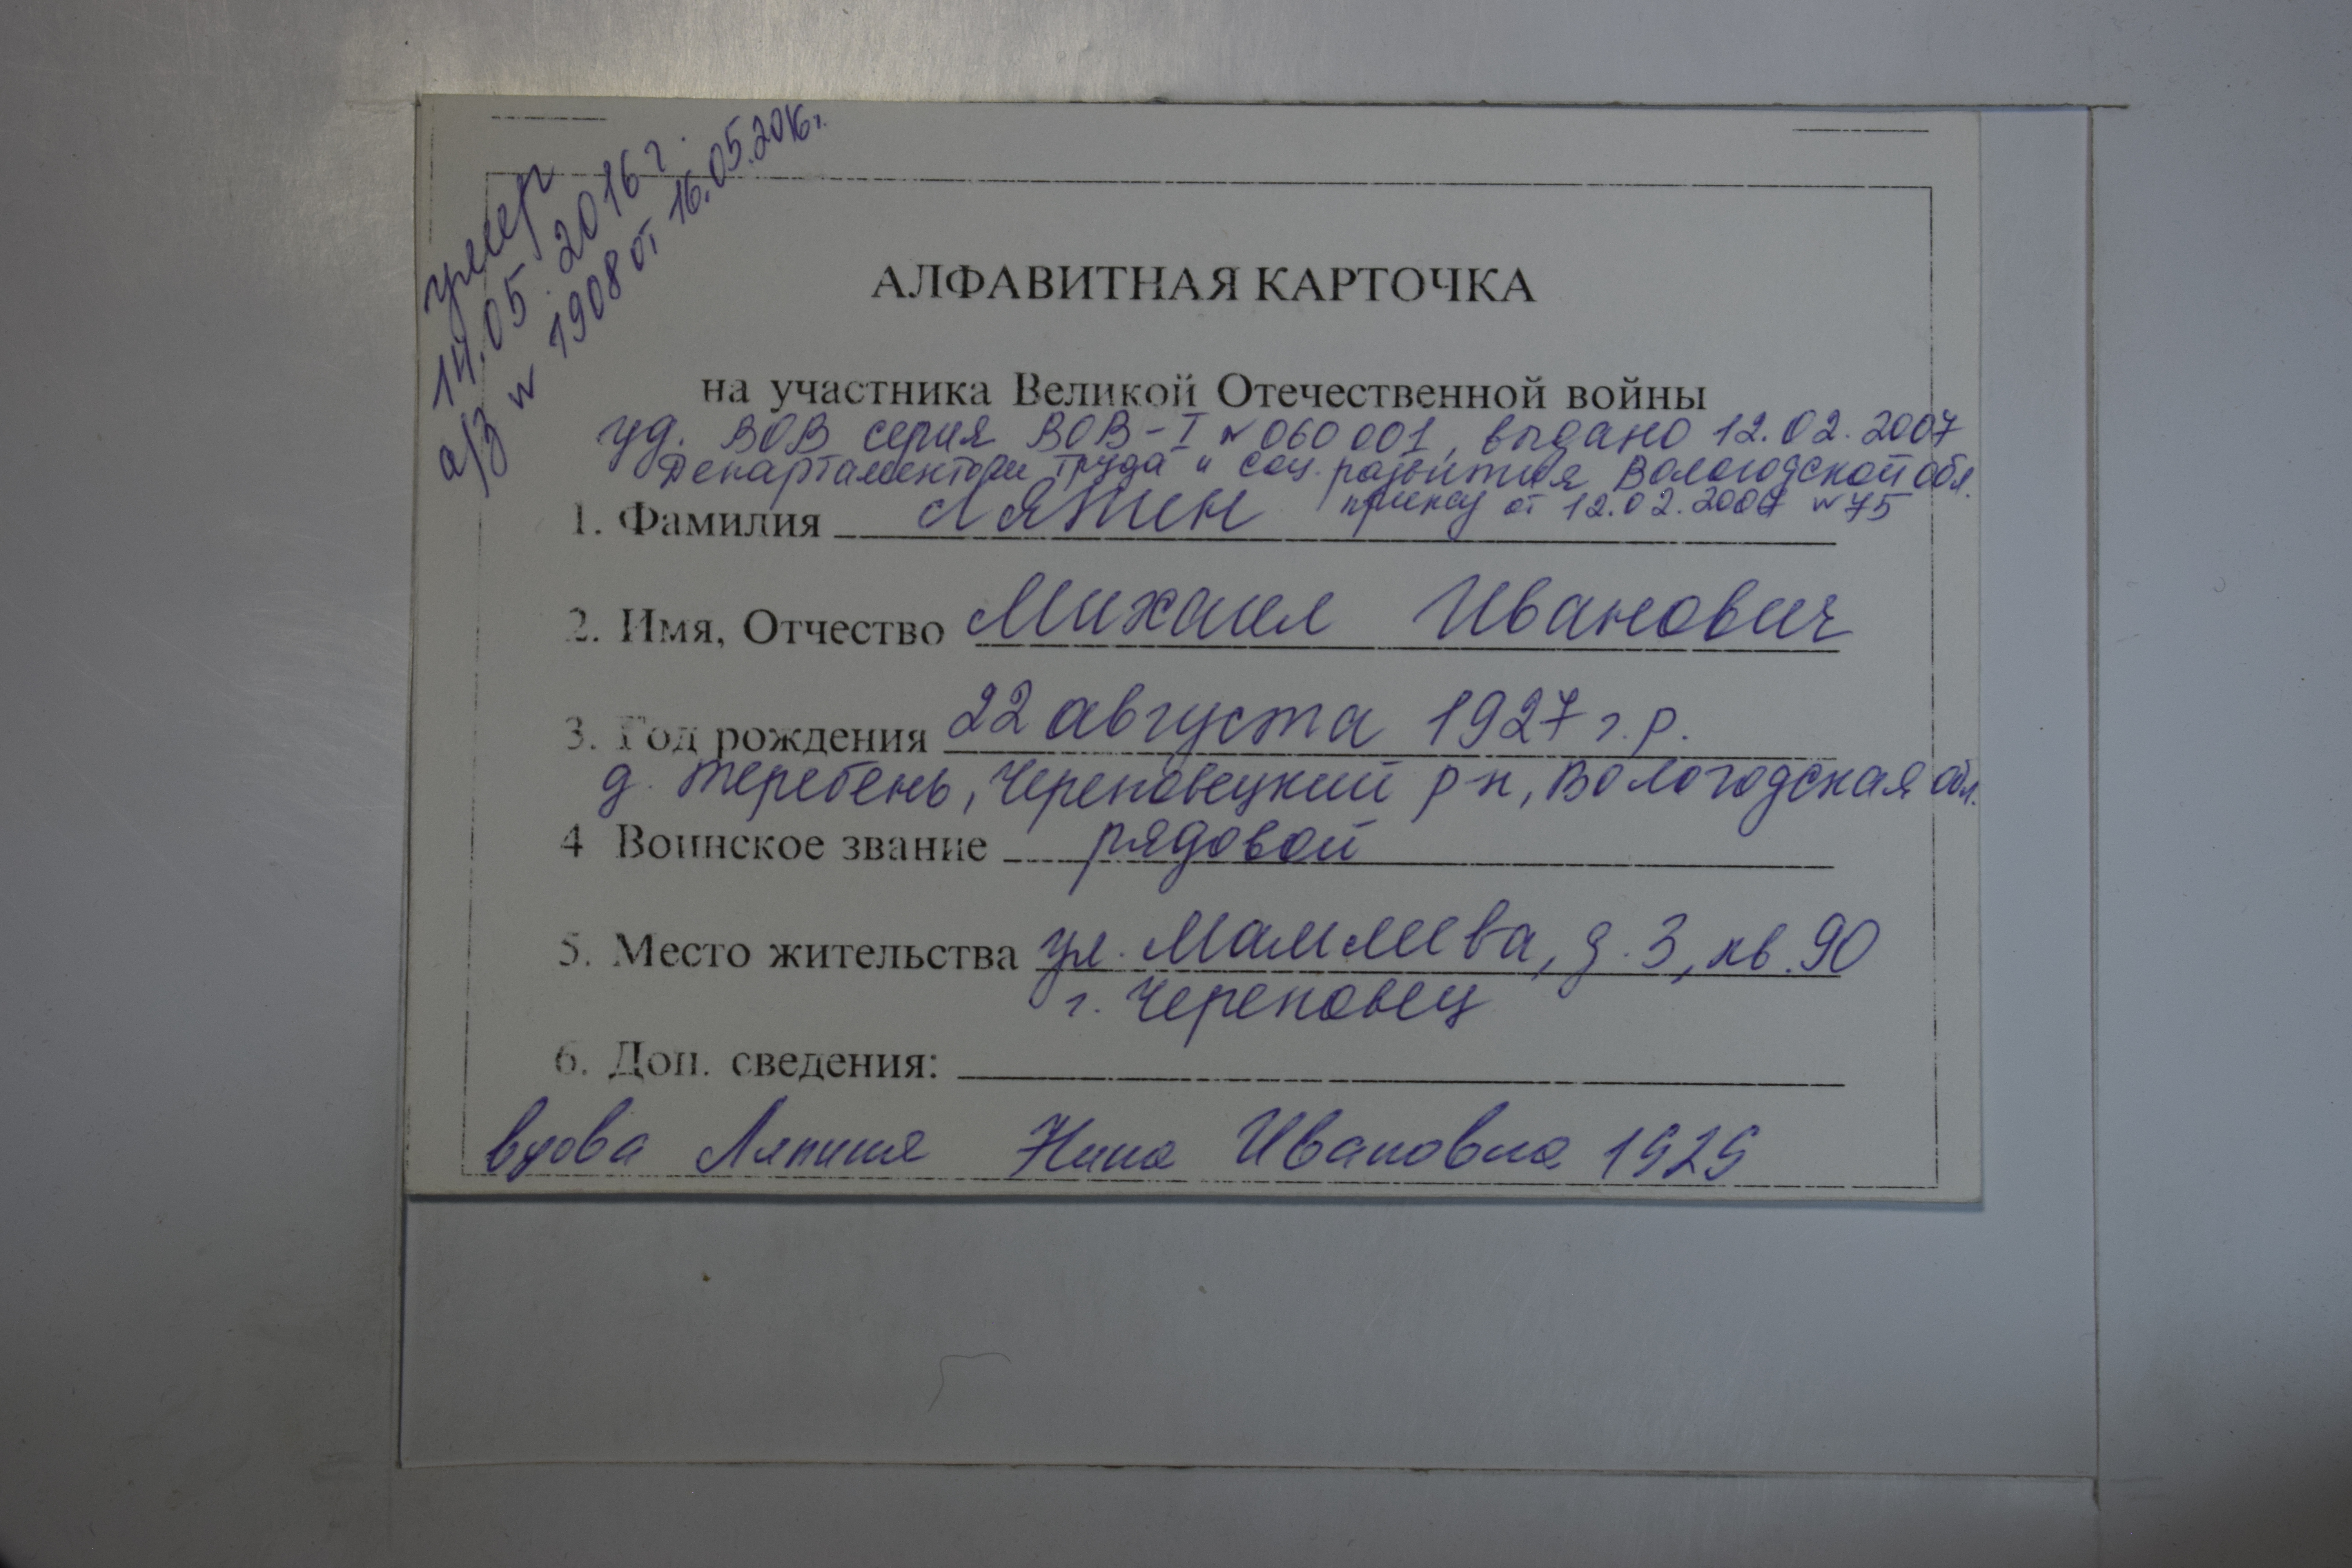 умер
14.05.2016 г.
а/з № 1908 от 16.05.2016 г.
АЛФАВИТНАЯ КАРТОЧКА
на участника Великой Отечественной войны
уд. ВОВ серия ВОВ-I № 060001, выдано 12.02.2007
Департаментом труда и соц. развития Вологодской обл.
1. Фамилия Ляпин приказ от 12.02.2007 № 75
2. Имя, Отчество Михаил Иванович
3. Год рождения 22 августа 1927 г.р.
д. Теребень, Череповецкий р-н, Вологодская обл.
4 Воинское звание рядовой
5. Место жительства ул. Мамлеева, д. 3, кв. 90
г. Череповец
6. Доп. сведения:
вдова Ляпина Нина Ивановна 1929